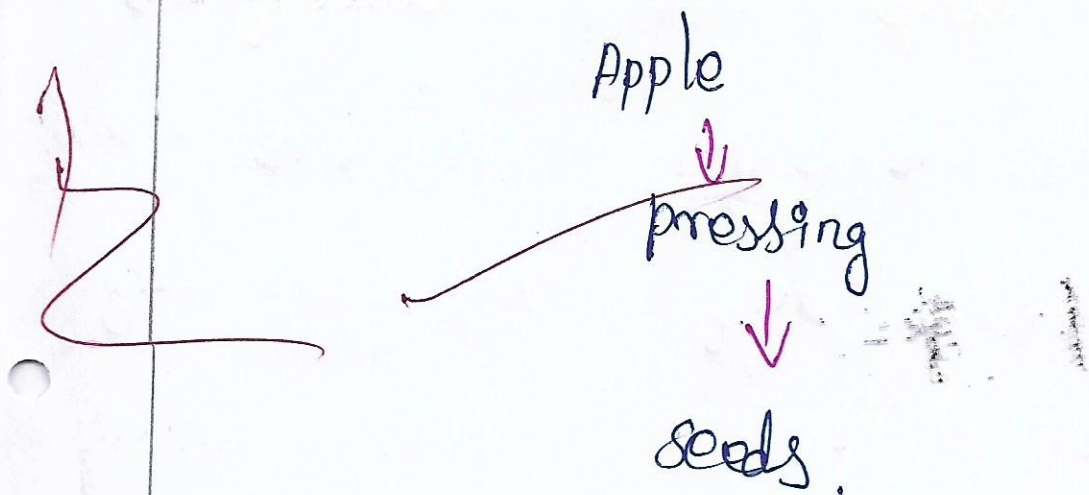 Apple
↓
pressing
↓
seeds.